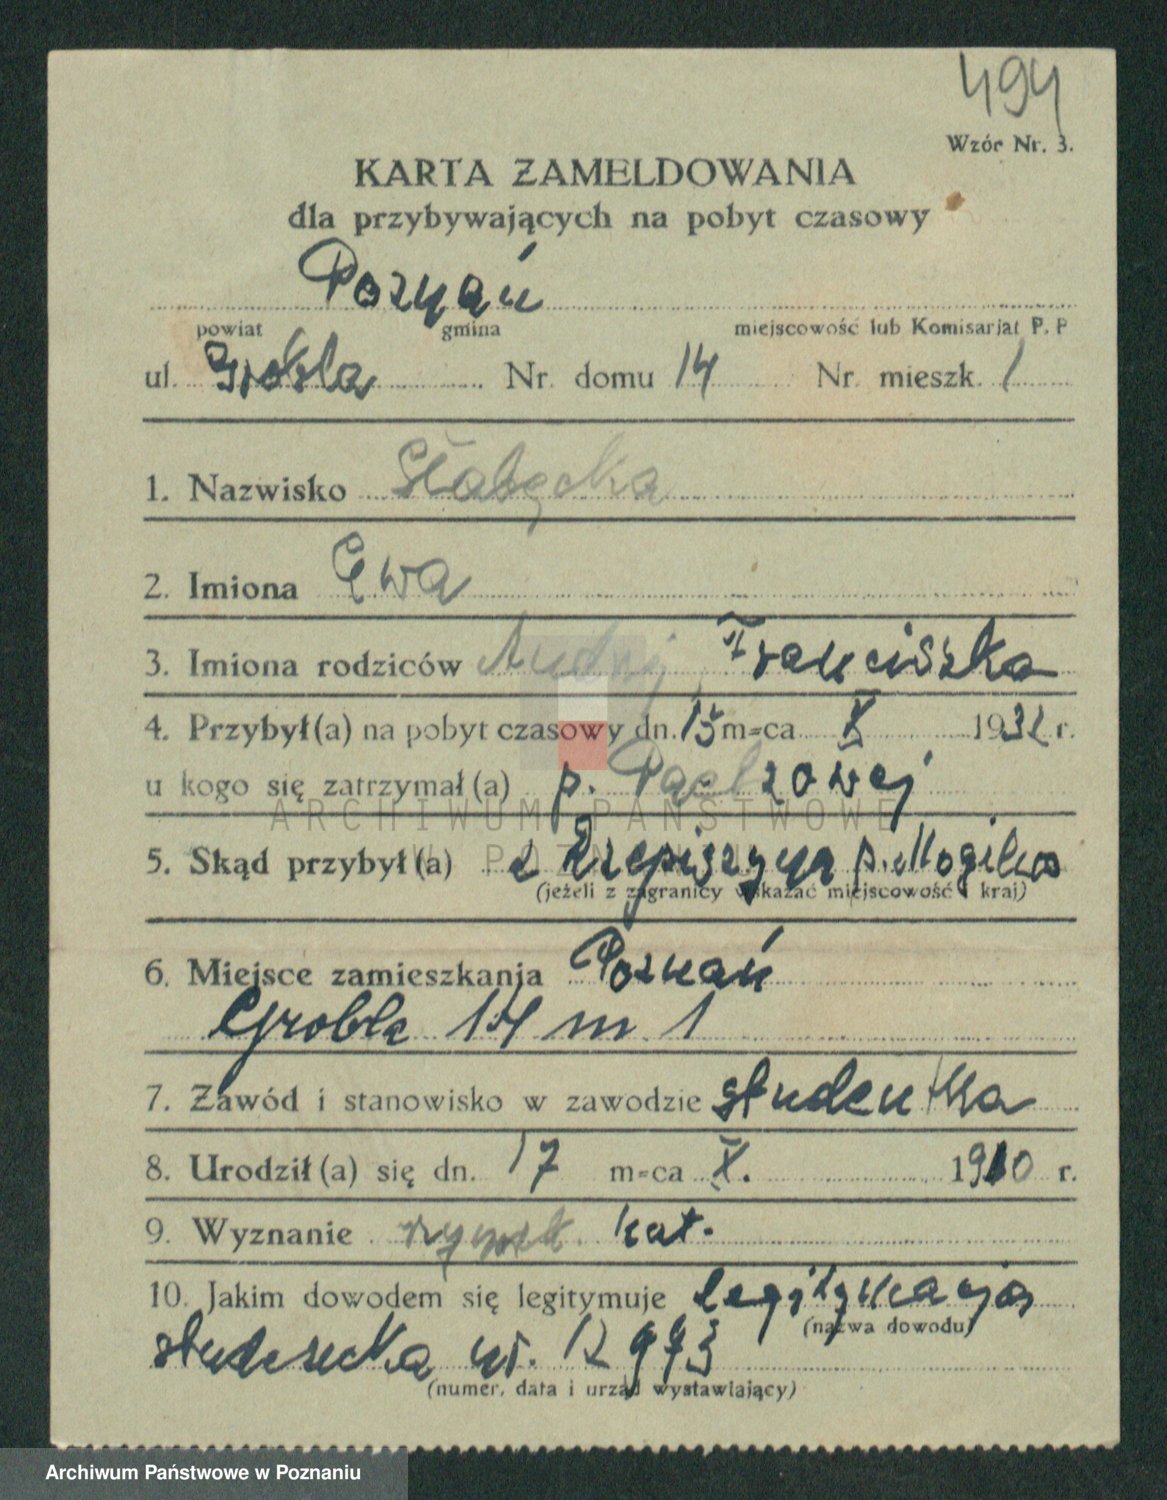 494
Wzór Nr. 3.
KARTA ZAMELDOWANIA
dla przybywających na pobyt czasowy
Poznań
powiat gmina miejscowość lub Komisarjat P. P
ul. Grobla Nr. domu 14 Nr. mieszk. 1
1. Nazwisko
2. Imiona Ewa
3. Imiona rodziców Andrzej, Franciszka
4. Przybył(a) na pobyt czasowy dn. 15 m-ca X 1932 r.
u kogo się zatrzymał(a) p.
ARCHIWUM PAŃSTWOWE
W POZNANIU
5. Skąd przybył(a) z p. Mogilno
(jeżeli z zagranicy wskazać miejscowość i kraj)
6. Miejsce zamieszkania Poznań
Grobla 14 m 1
7. Zawód i stanowisko w zawodzie studentka
8. Urodził(a) się dn. 17 m-ca X. 1910 r.
9. Wyznanie rzymsk. kat.
10. Jakim dowodem się legitymuje legitymacja
(nazwa dowodu)
studencka nr. 12973
(numer, data i urząd wystawiający)
Archiwum Państwowe w Poznaniu